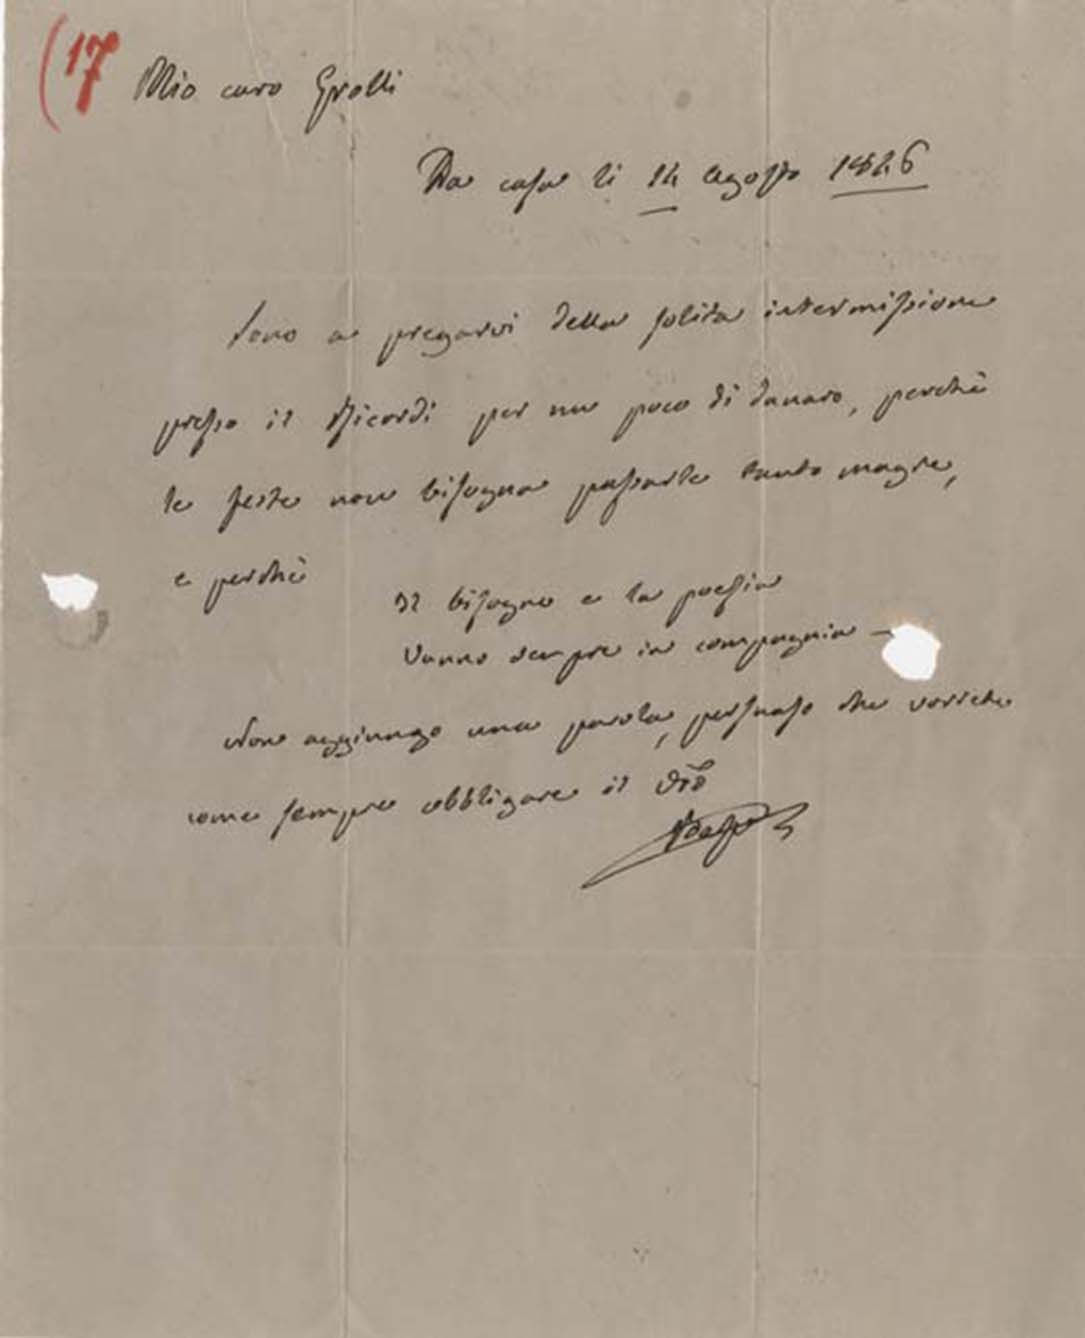 (17
Mio caro Grolli
Da casa li 14 agosto 1846
Sono a pregarvi della solita intermissione
presso il Ricordi per un poco di danaro, perchè
le feste non bisogna passarle tanto magre,
e perchè
Il bisogno e la poesia
Vanno sempre in compagnia —
Non aggiungo una parola, persuaso che vorrete
come sempre obbligare il